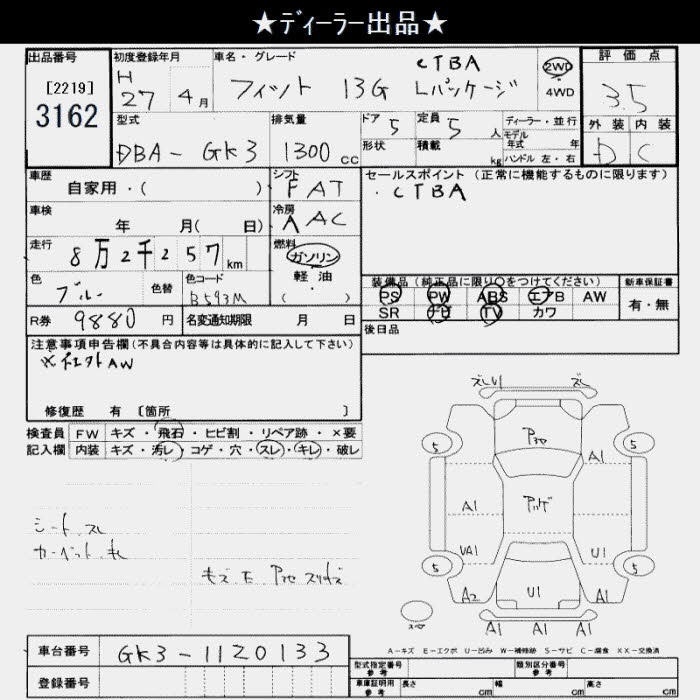 ★ディーラー出品★
出品番号 初度登録年月 車名・グレード 評価点
[2219] H CTBA 2WD
3162 27 4月 フィット 13G Lパッケージ 4WD 3.5
型式 排気量 ドア 定員 ディーラー・並行 外装 内装
5 5人 モデル年式 年
DBA-GK3 1300cc 形状 積載 kg ハンドル 左・右 D C
車歴 シフト セールスポイント(正常に機能するものに限ります)
自家用・( ) FAT ・CTBA
車検 冷房
年 月( 日) AAC
走行 燃料
8万2千257km ガソリン
軽油
色 色替 色コード ・
ブルー B593M ( )
装備品(純正品に限り○をつけてください) 新車保証書
PS PW ABS エアB AW 有・無
SR ナビ TV カワ
R券 9880円 名変通知期限 月 日 後日品
注意事項申告欄(不具合内容等は具体的に記入して下さい)
AW
修復歴 有 [箇所 ]
検査員 FW キズ・飛石・ヒビ割・リペア跡・×要
記入欄 内装 キズ・汚レ・コゲ・穴・スレ・キレ・破レ
スレU1 スレ
5 5
A1
A1
シート スレ
カーペット キレ
UA1 U1
5 5
A2 U1 A1
A1 A1 A1
スペア
A-キズ E-エクボ U-凹み W-補修跡 S-サビ C-腐食 XX-交換済
車台番号 GK3-1120133
型式指定番号 参考 類別区分番号 参考
登録番号 車庫証明用 参考 長さ cm 幅 cm 高さ cm